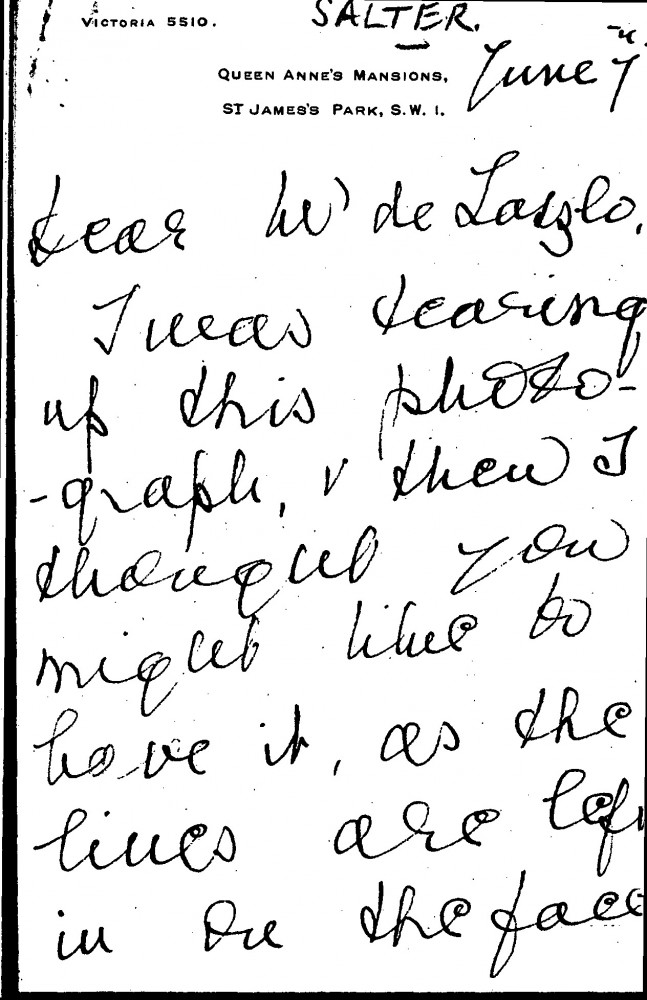 VICTORIA 5510.
SALTER.
QUEEN ANNE'S MANSIONS,
ST JAMES'S PARK, S.W. 1.
June 7
Dear Mr de Laszlo,
I was tearing
up this photo-
-graph, & then I
thought you
might like to
have it, as the
lines are left
in on the face